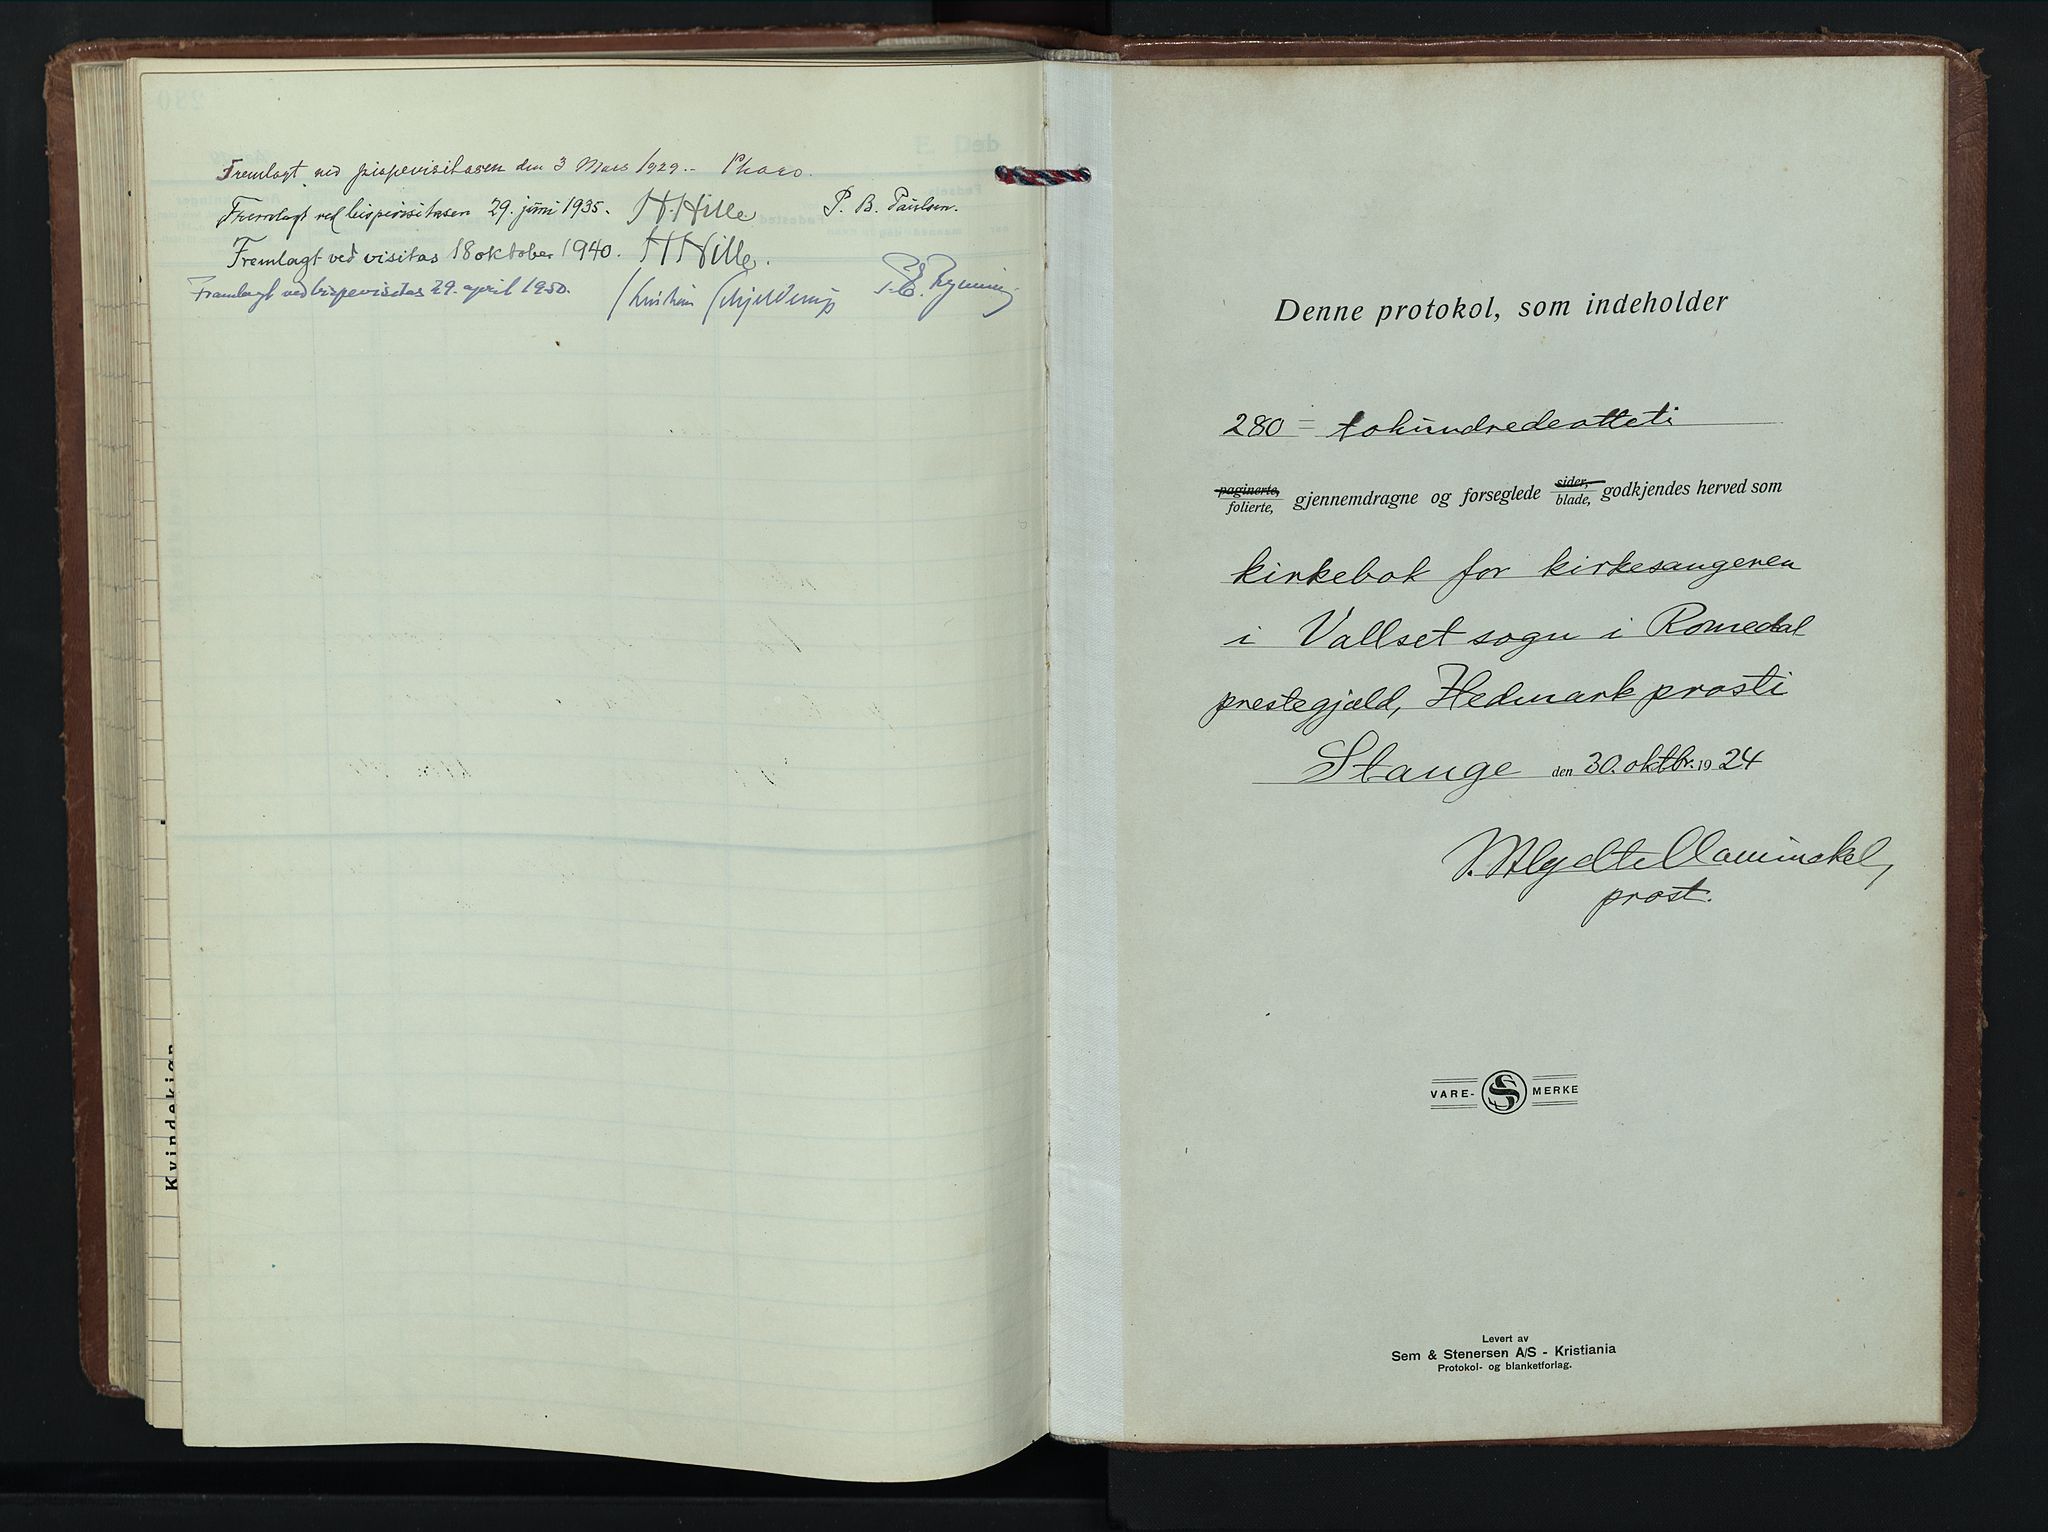 Fremlagt ved bispevisitasen den 3 Mars 1929.
Fremlagt ved bispevisitasen 29. juni 1935. H. Hille P. B. Paulsen.
Fremlagt ved visitas 18 oktober 1940. H Hille.
Framlagt ved bispevisitas 29. april 1950. Kristian Schjelderup
Kvindekjøn
Denne protokol, som indeholder
280 = tohundredeotteti
paginerte, folierte, gjennemdragne og forseglede sider, blade, godkjendes herved som
kirkebok for kirkesangeren
i Vallset sogn i Romedal
prestegjæld, Hedmark prosti
Stange den 30. oktbr. 1924
prost.
VARE-MERKE
Levert av
Sem & Stenersen A/S - Kristiania
Protokol- og blanketforlag.